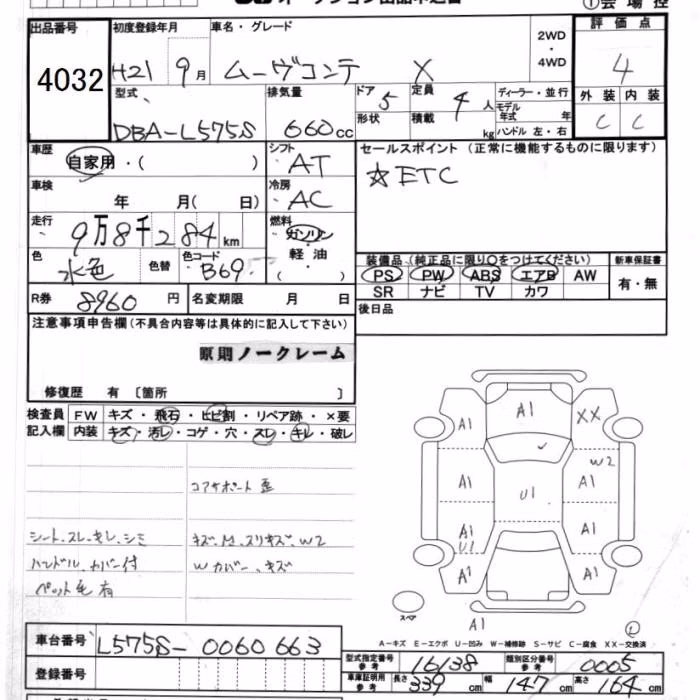 出品番号 初度登録年月 車名・グレード 2WD・4WD 評価点
4032 H21 9月 ムーヴコンテ X 4
型式 排気量 ドア 5 定員 4人 ディーラー・並行 外装 内装
DBA-L575S 660cc 形状 積載 kg モデル年式 年 ハンドル 左・右 C C
車歴 自家用・( ) シフト AT セールスポイント (正常に機能するものに限ります)
車検 年 月( 日) 冷房 AC ☆ETC
走行 9万8千284km 燃料 ガソリン・軽油 ( )
色 水色 色替 色コード B69
装備品(純正品に限り○をつけてください) 新車保証書
PS PW ABS エアB AW 有・無
SR ナビ TV カワ
R券 8960円 名変期限 月 日 後日品
注意事項申告欄(不具合内容等は具体的に記入して下さい)
原則ノークレーム
修復歴 有 〔箇所 〕
検査員 FW キズ・飛石・ヒビ割・リペア跡・×要
記入欄 内装 キズ・汚レ・コゲ・穴・スレ・キレ・破レ
コアサポート歪
シート、スレ、キレ、シミ キズ、M、スリキズ、W2
ハンドル、カバー付 Wカバー、キズ
ペット毛有
A1 A1 XX
W2
A1 U1 A1
A1 U1 A1
A1 A1
スペア A1
A-キズ E-エクボ U-凹み W-補修跡 S-サビ C-腐食 XX-交換済
車台番号 L575S-0060663
型式指定番号 参考 16138 類別区分番号 参考 0005
登録番号 車庫証明用 参考 長さ 339cm 幅 147cm 高さ 164cm